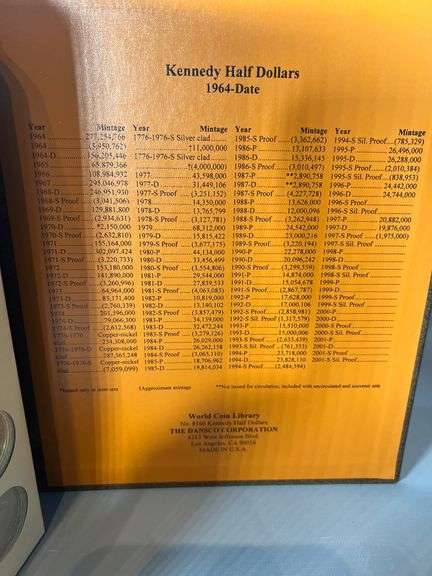 Kennedy Half Dollars
1964-Date
Year Mintage Year Mintage Year Mintage Year Mintage
1964 277,254,766
1964 (5,950,762)
1964-D 156,205,446
1965 65,879,366
1966 108,984,932
1967 295,046,978
1968-D 246,951,930
1968-S Proof (3,041,506)
1969-D 129,881,800
1969-S Proof (2,934,631)
1970-D *2,150,000
1970-S Proof (2,632,810)
1971 155,164,000
1971-D 302,097,424
1971-S Proof (3,220,733)
1972 153,180,000
1972-D 141,890,000
1972-S Proof (3,260,996)
1973 64,964,000
1973-D 83,171,400
1973-S Proof (2,760,339)
1974 201,596,000
1974-D 79,066,300
1974-S Proof (2,612,568)
1776-1976 Copper-nickel
clad 234,308,000
1776-1976-D Copper-nickel
clad 287,565,248
1776-1976-S Copper-nickel
clad (7,059,099)
1776-1976-S Silver clad
†11,000,000
1776-1976-S Silver clad
†(4,000,000)
1977 43,598,000
1977-D 31,449,106
1977-S Proof (3,251,152)
1978 14,350,000
1978-D 13,765,799
1978-S Proof (3,127,781)
1979 68,312,000
1979-D 15,815,422
1979-S Proof (3,677,175)
1980-P 44,134,000
1980-D 33,456,449
1980-S Proof (3,554,806)
1981-P 29,544,000
1981-D 27,839,533
1981-S Proof (4,063,083)
1982-P 10,819,000
1982-D 13,140,102
1982-S Proof (3,857,479)
1983-P 34,139,000
1983-D 32,472,244
1983-S Proof (3,279,126)
1984-P 26,029,000
1984-D 26,262,158
1984-S Proof (3,065,110)
1985-P 18,706,962
1985-D 19,814,034
1985-S Proof (3,362,662)
1986-P 13,107,633
1986-D 15,336,145
1986-S Proof (3,010,497)
1987-P **2,890,758
1987-D **2,890,758
1987-S Proof (4,227,728)
1988-P 13,626,000
1988-D 12,000,096
1988-S Proof (3,262,948)
1989-P 24,542,000
1989-D 23,000,216
1989-S Proof (3,220,194)
1990-P 22,278,000
1990-D 20,096,242
1990-S Proof (3,299,559)
1991-P 14,874,000
1991-D 15,054,678
1991-S Proof (2,867,787)
1992-P 17,628,000
1992-D 17,000,106
1992-S Proof (2,858,981)
1992-S Sil. Proof (1,317,579)
1993-P 15,510,000
1993-D 15,000,006
1993-S Proof (2,633,439)
1993-S Sil. Proof (761,353)
1994-P 23,718,000
1994-D 23,828,110
1994-S Proof (2,484,594)
1994-S Sil. Proof (785,329)
1995-P 26,496,000
1995-D 26,288,000
1995-S Proof (2,010,384)
1995-S Sil. Proof (838,953)
1996-P 24,442,000
1996-D 24,744,000
1996-S Proof
1996-S Sil. Proof
1997-P 20,882,000
1997-D 19,876,000
1997-S Proof (1,975,000)
1997-S Sil. Proof
1998-P
1998-D
1998-S Proof
1998-S Sil. Proof
1999-P
1999-D
1999-S Proof
1999-S Sil. Proof
2000-P
2000-D
2000-S Proof
2000-S Sil. Proof
2001-P
2001-D
2001-S Proof
2001-S Sil. Proof
*Issued only in mint sets †Approximate mintage **Not issued for circulation, included with uncirculated and souvenir sets
World Coin Library
No. 8166 Kennedy Half Dollars
THE DANSCO CORPORATION
4313 West Jefferson Blvd.
Los Angeles, CA 90016
MADE IN U.S.A.